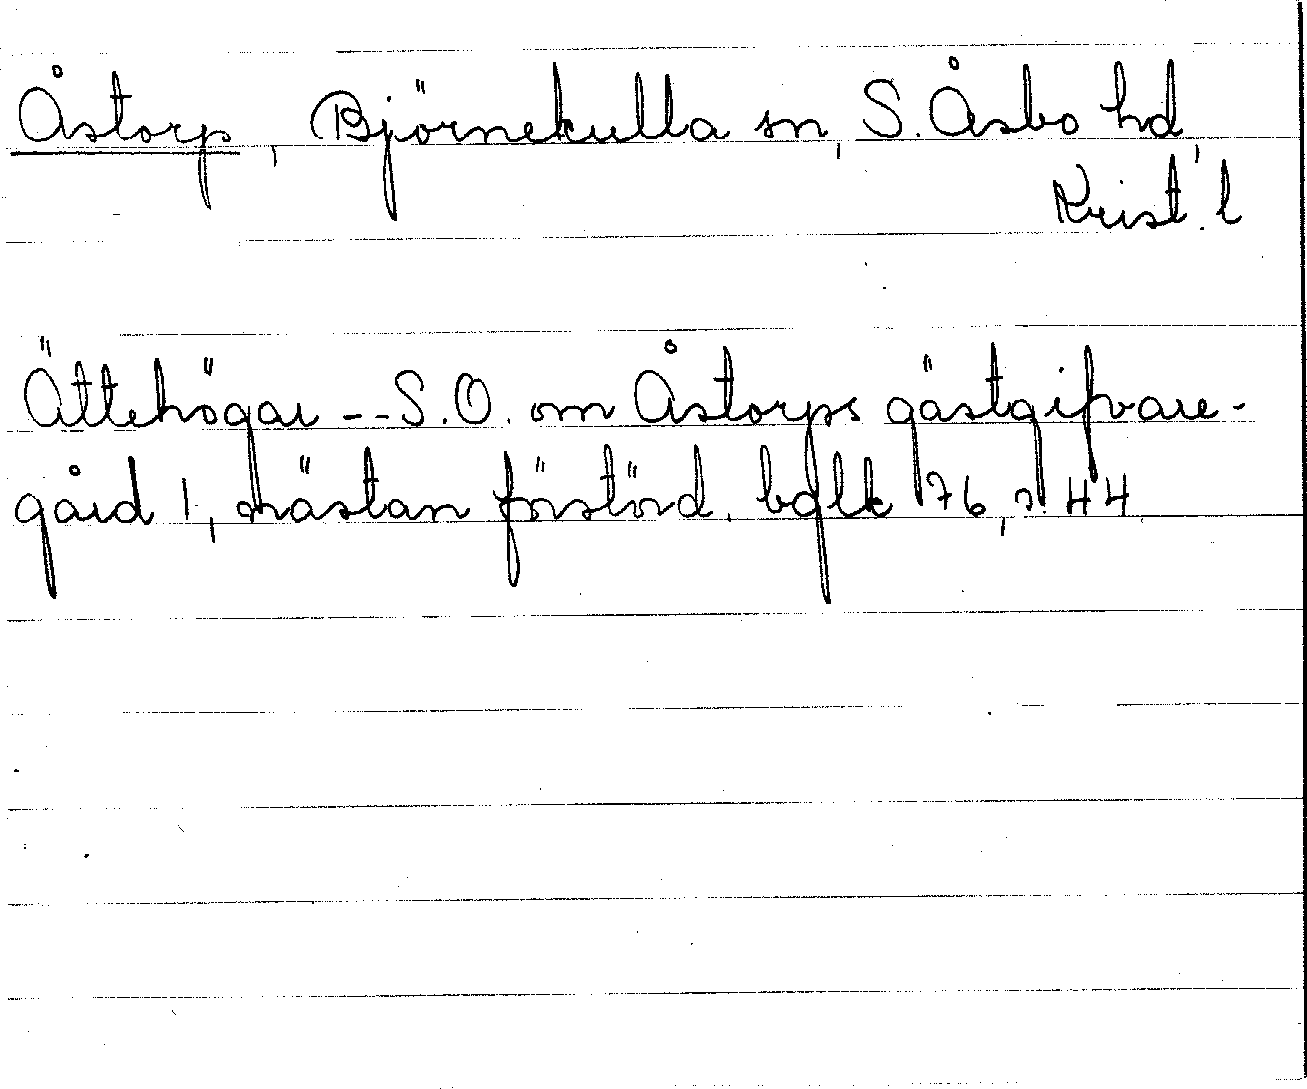 Åstorp, Björnekulla sn, S. Åsbo hd,
Krist. l
Ättehögar -- S.O. om Åstorps gästgifvare-
gård 1, nästan förstörd. bglk 176, s. 44